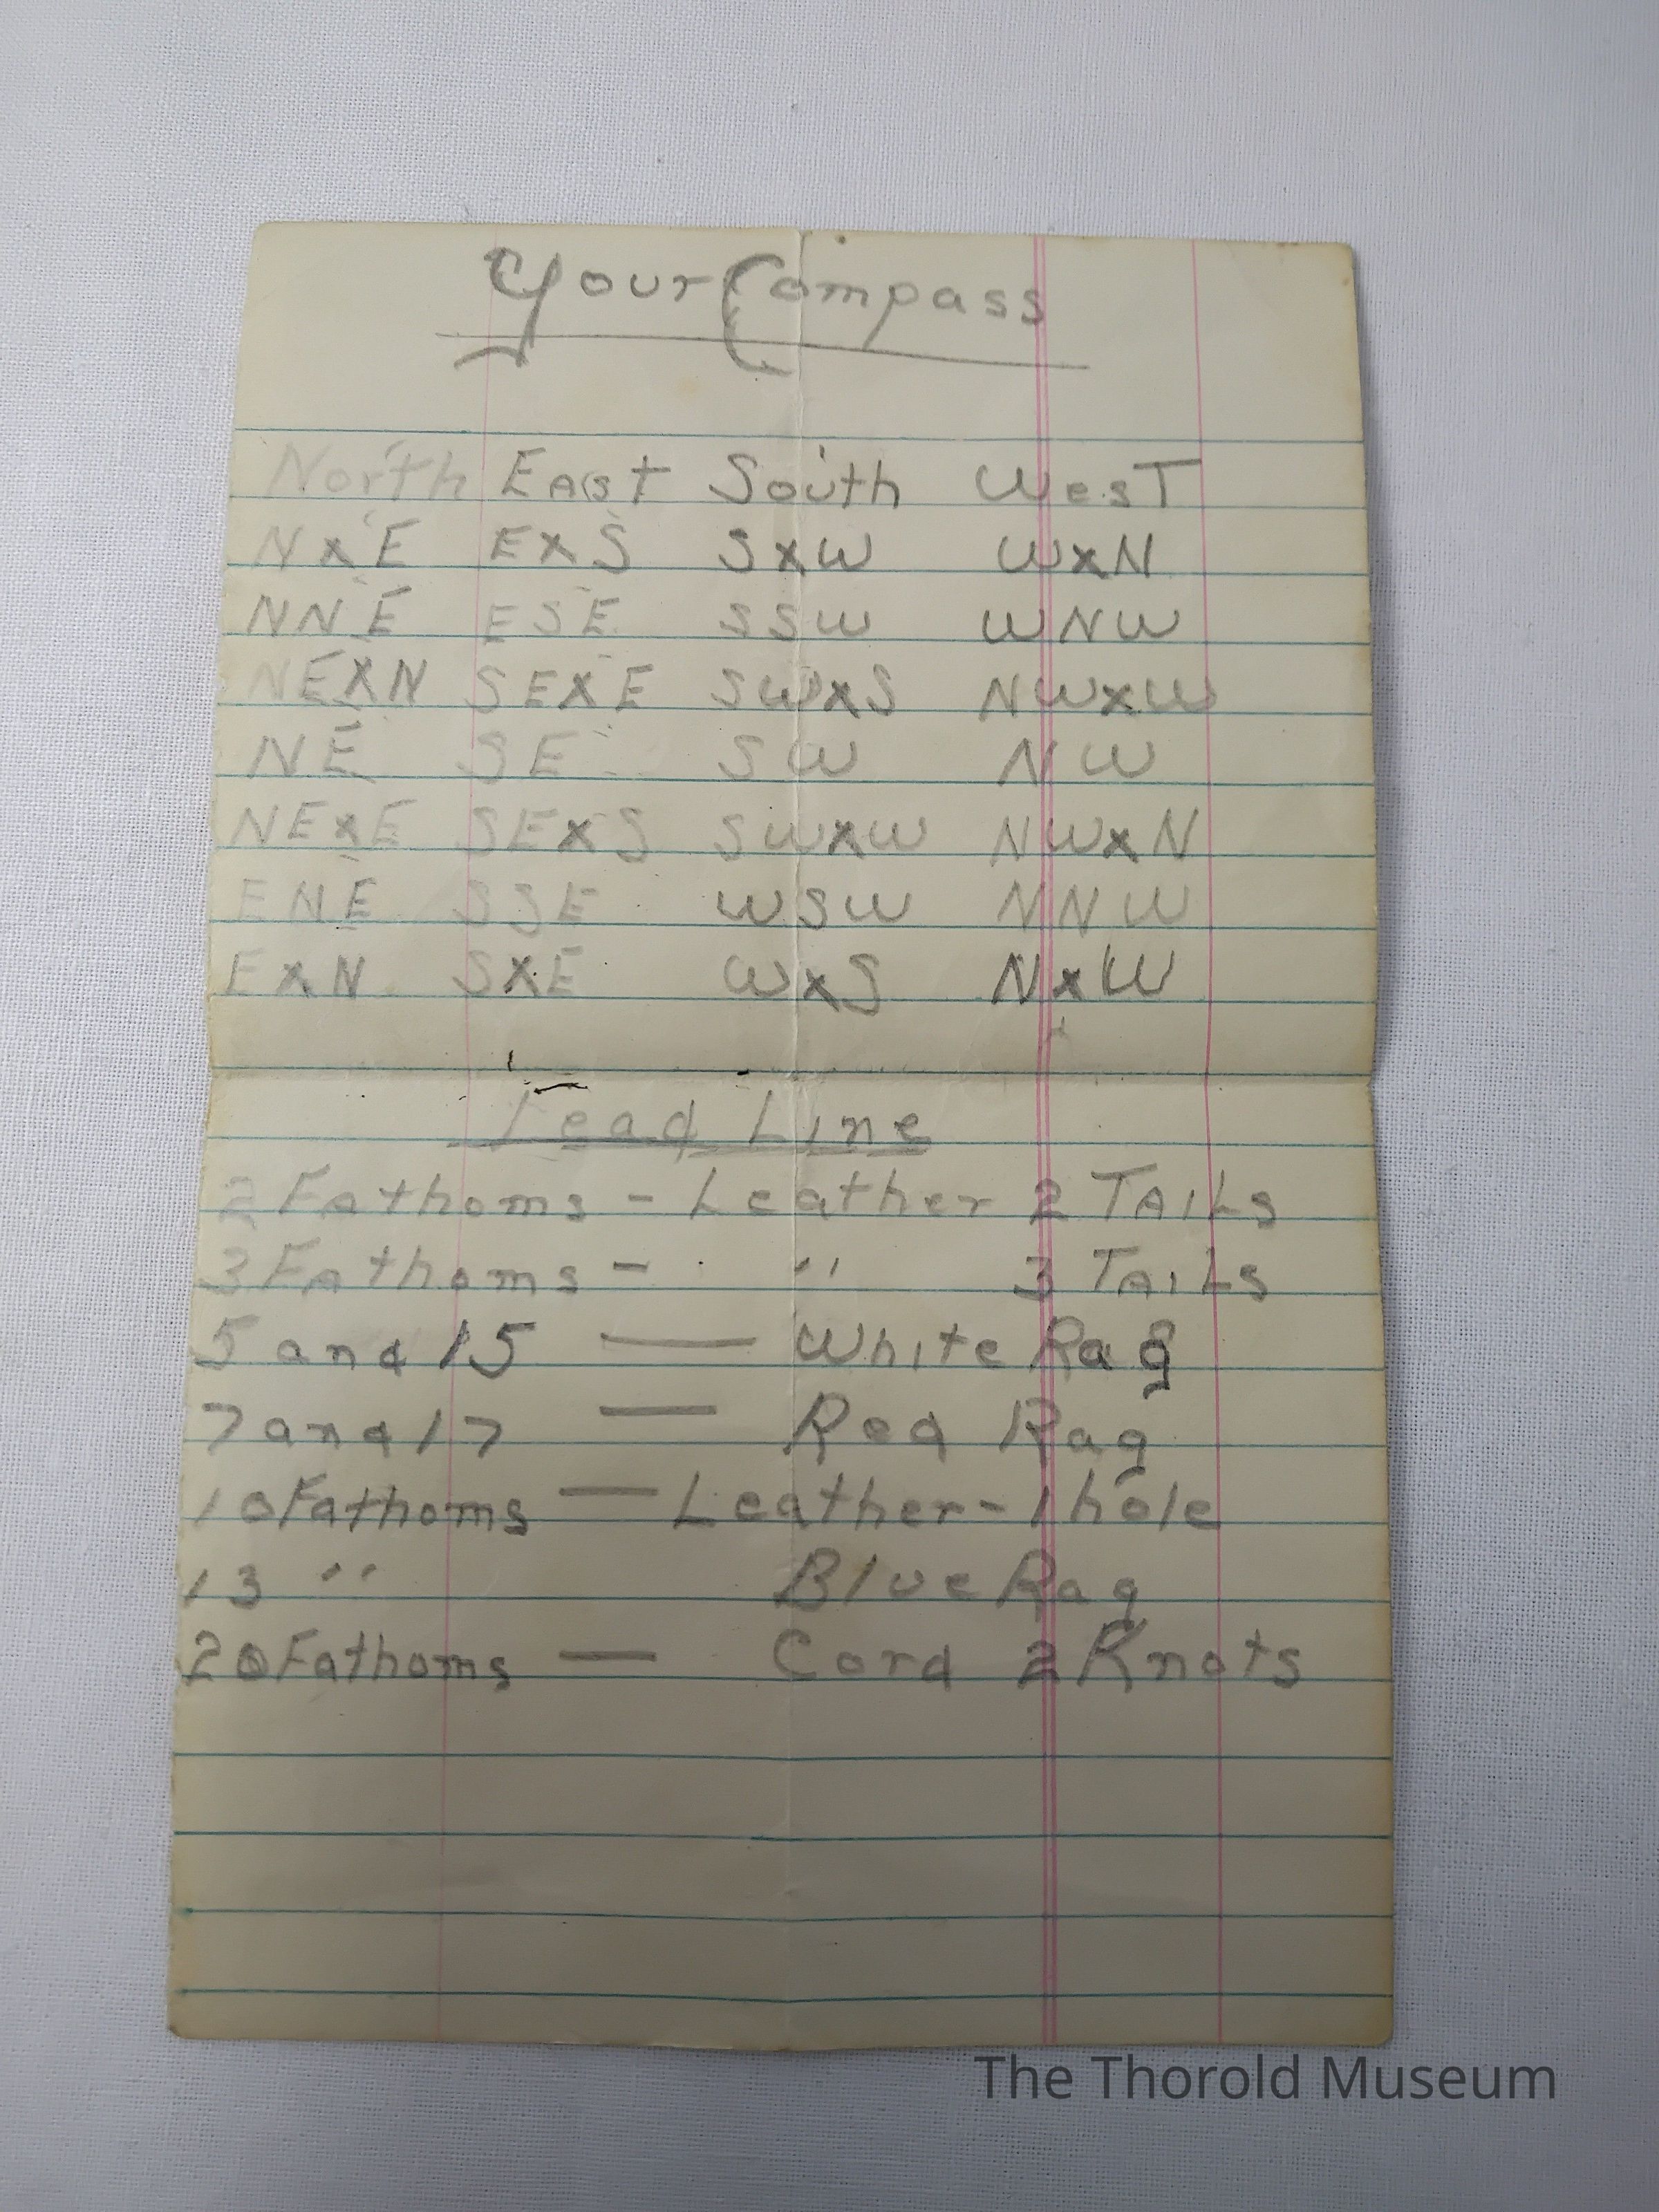 Your Compass
North East South West
NxE ExS SxW WxN
NNE ESE SSW WNW
NExN SExE SWxS NWxW
NE SE SW NW
NExE SExS SWxW NWxN
ENE SSE WSW NNW
ExN SxE WxS NxW
Lead Line
2 Fathoms - Leather 2 Tails
3 Fathoms - " 3 Tails
5 and 15 — White Rag
7 and 17 — Red Rag
10 Fathoms — Leather - 1 hole
13 " Blue Rag
20 Fathoms — Cord 2 Knots
The Thorold Museum